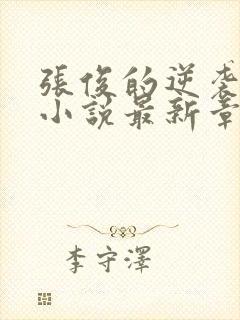 張俊的逆袭
小說最新章
李守澤